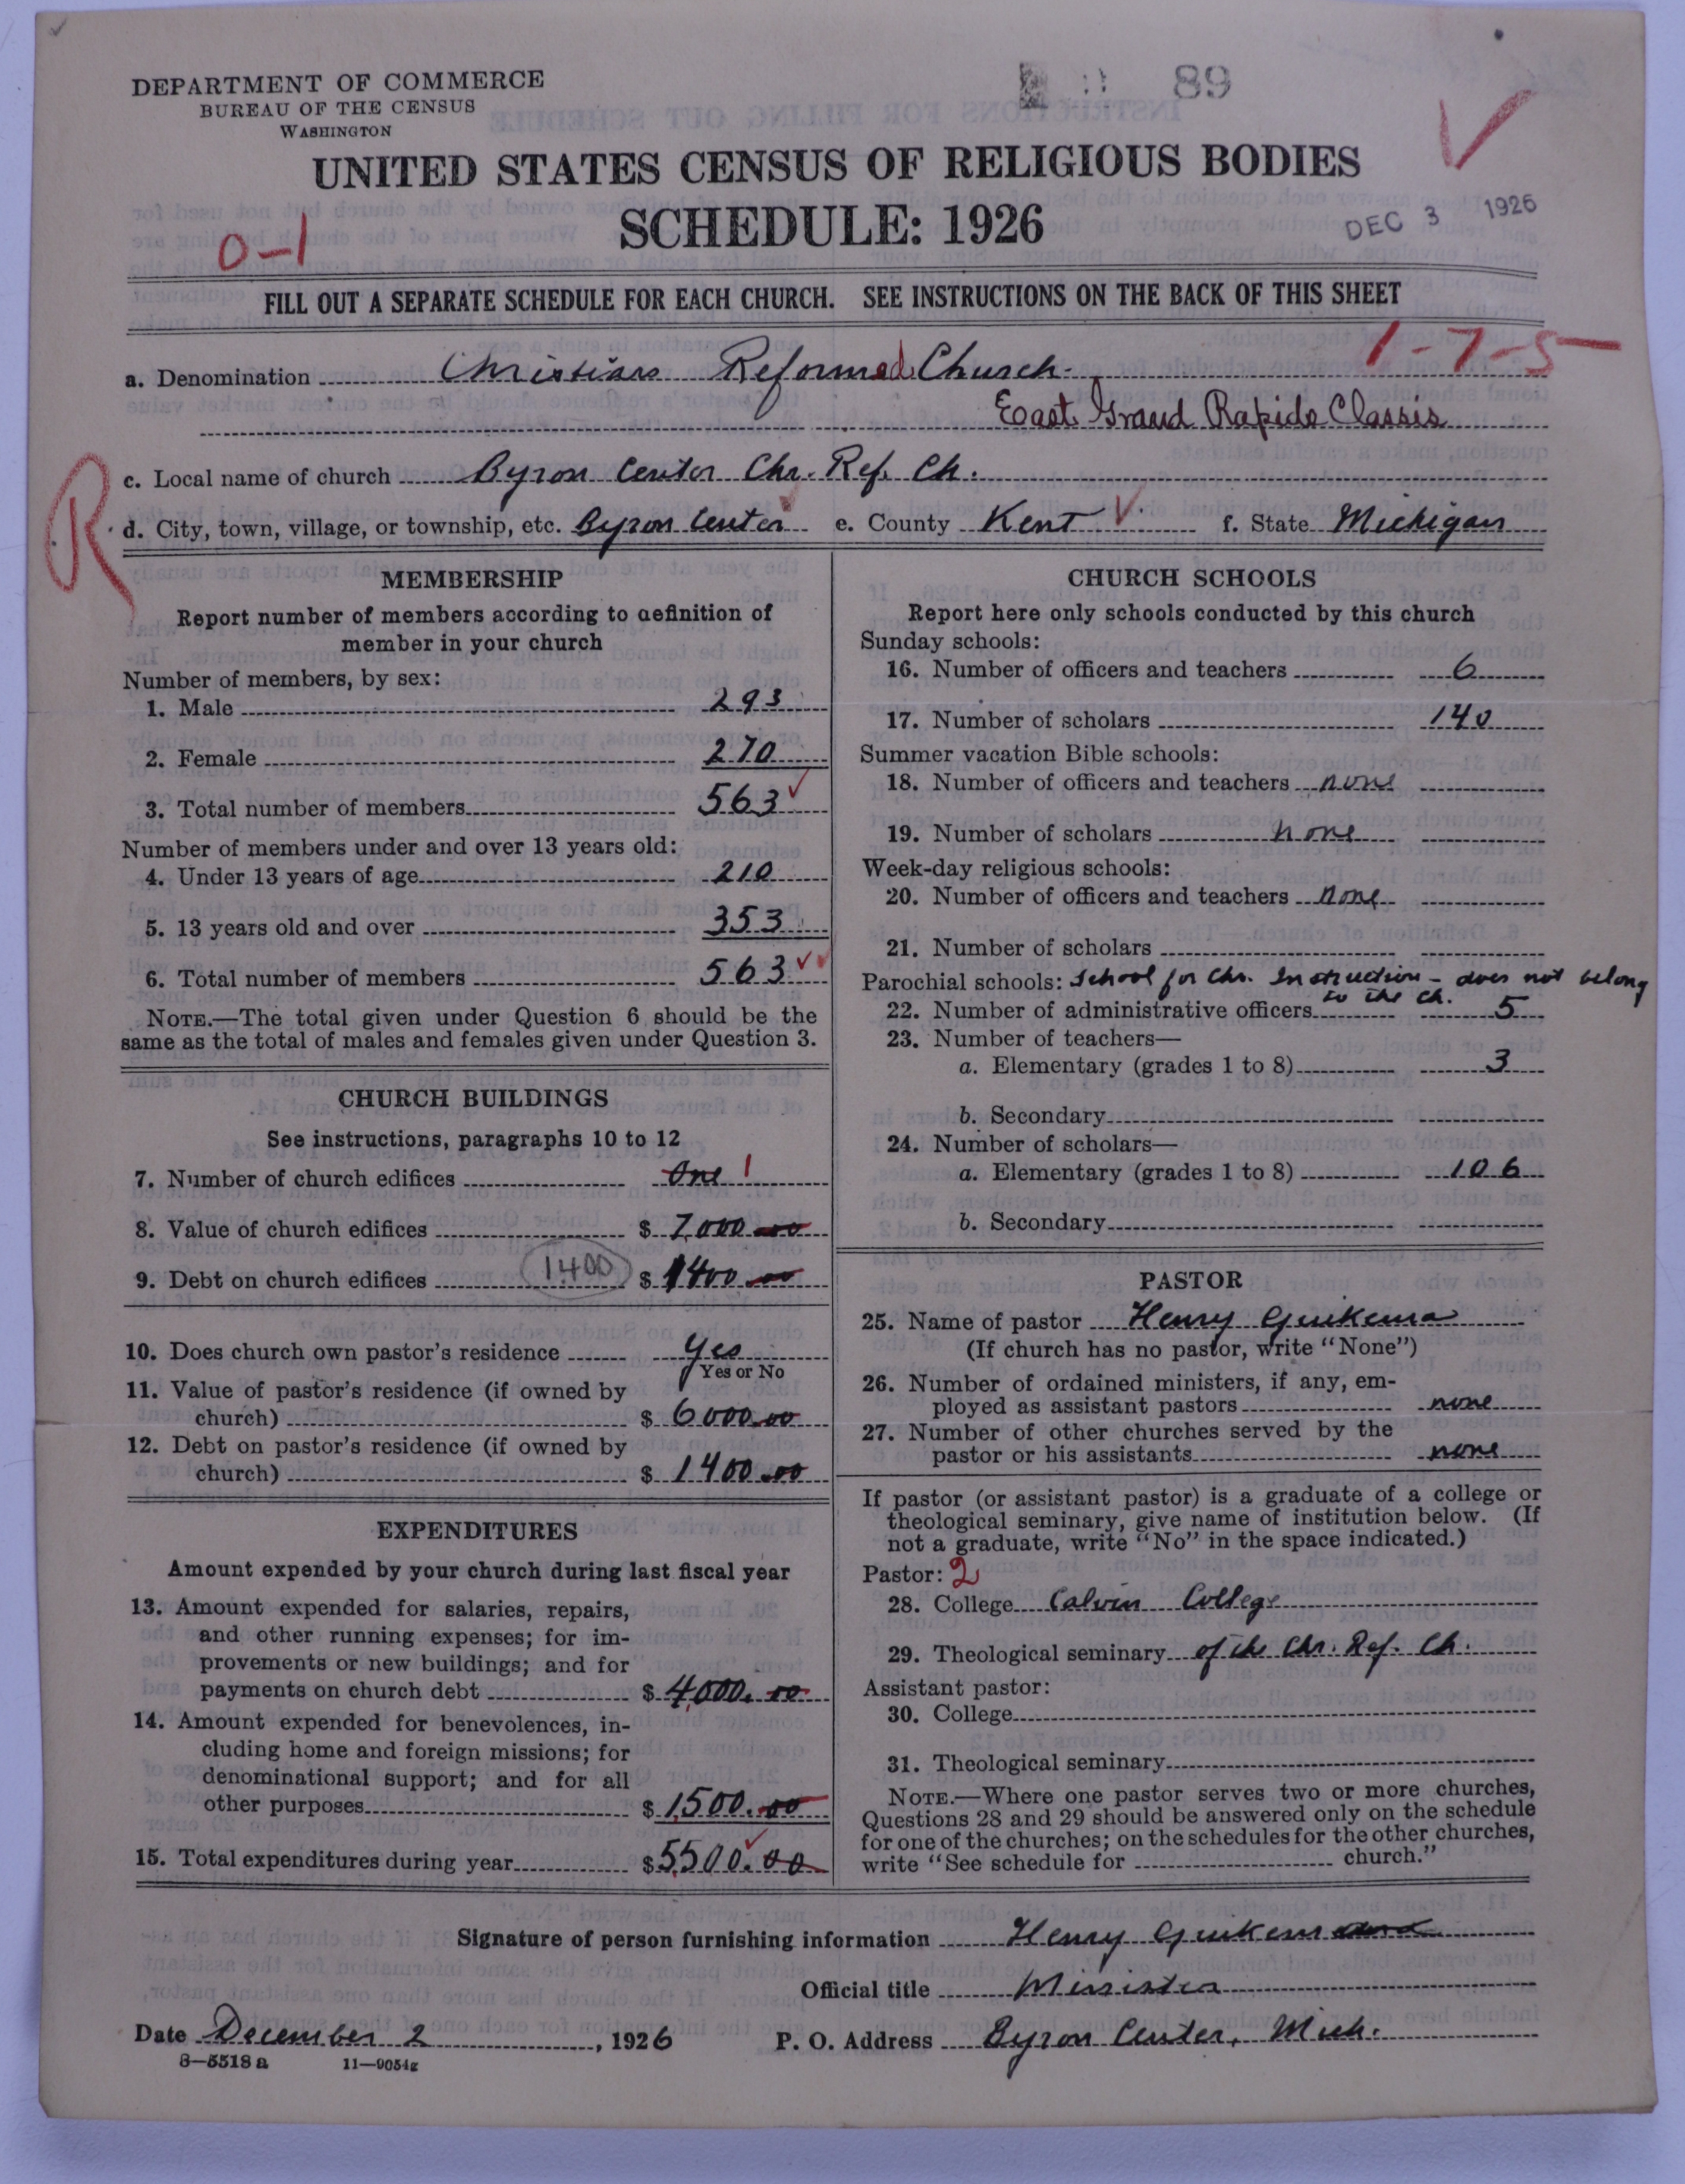 DEPARTMENT OF COMMERCE
BUREAU OF THE CENSUS
WASHINGTON
89
UNITED STATES CENSUS OF RELIGIOUS BODIES
SCHEDULE: 1926
DEC 3 1926
0-1
FILL OUT A SEPARATE SCHEDULE FOR EACH CHURCH. SEE INSTRUCTIONS ON THE BACK OF THIS SHEET
1-7-5
a. Denomination Christian Reformed Church.
East Grand Rapids Classis
c. Local name of church Byron Center Chr. Ref. Ch.
R
d. City, town, village, or township, etc. Byron Center e. County Kent f. State Michigan
MEMBERSHIP
Report number of members according to definition of
member in your church
Number of members, by sex:
1. Male 293
2. Female 270
3. Total number of members 563
Number of members under and over 13 years old:
4. Under 13 years of age 210
5. 13 years old and over 353
6. Total number of members 563
NOTE.—The total given under Question 6 should be the
same as the total of males and females given under Question 3.
CHURCH BUILDINGS
See instructions, paragraphs 10 to 12
7. Number of church edifices One 1
8. Value of church edifices $ 7,000 00
9. Debt on church edifices 1400 $ 1400 00
10. Does church own pastor's residence Yes
Yes or No
11. Value of pastor's residence (if owned by
church) $ 6000.00
12. Debt on pastor's residence (if owned by
church) $ 1400.00
EXPENDITURES
Amount expended by your church during last fiscal year
13. Amount expended for salaries, repairs,
and other running expenses; for im-
provements or new buildings; and for
payments on church debt $ 4,000.00
14. Amount expended for benevolences, in-
cluding home and foreign missions; for
denominational support; and for all
other purposes $ 1,500.00
15. Total expenditures during year $ 5,500.00
CHURCH SCHOOLS
Report here only schools conducted by this church
Sunday schools:
16. Number of officers and teachers 6
17. Number of scholars 140
Summer vacation Bible schools:
18. Number of officers and teachers none
19. Number of scholars none
Week-day religious schools:
20. Number of officers and teachers none
21. Number of scholars
Parochial schools: School for Chr. Instruction - does not belong
to the ch.
22. Number of administrative officers 5
23. Number of teachers—
a. Elementary (grades 1 to 8) 3
b. Secondary
24. Number of scholars—
a. Elementary (grades 1 to 8) 106
b. Secondary
PASTOR
25. Name of pastor Henry Guikema
(If church has no pastor, write "None")
26. Number of ordained ministers, if any, em-
ployed as assistant pastors none
27. Number of other churches served by the
pastor or his assistants none
If pastor (or assistant pastor) is a graduate of a college or
theological seminary, give name of institution below. (If
not a graduate, write "No" in the space indicated.)
Pastor: 2
28. College Calvin College
29. Theological seminary of the Chr. Ref. Ch.
Assistant pastor:
30. College
31. Theological seminary
NOTE.—Where one pastor serves two or more churches,
Questions 28 and 29 should be answered only on the schedule
for one of the churches; on the schedules for the other churches,
write "See schedule for church."
Signature of person furnishing information Henry Guikema
Official title Minister
Date December 2, 1926 P. O. Address Byron Center, Mich.
8—5518 a 11—9054g